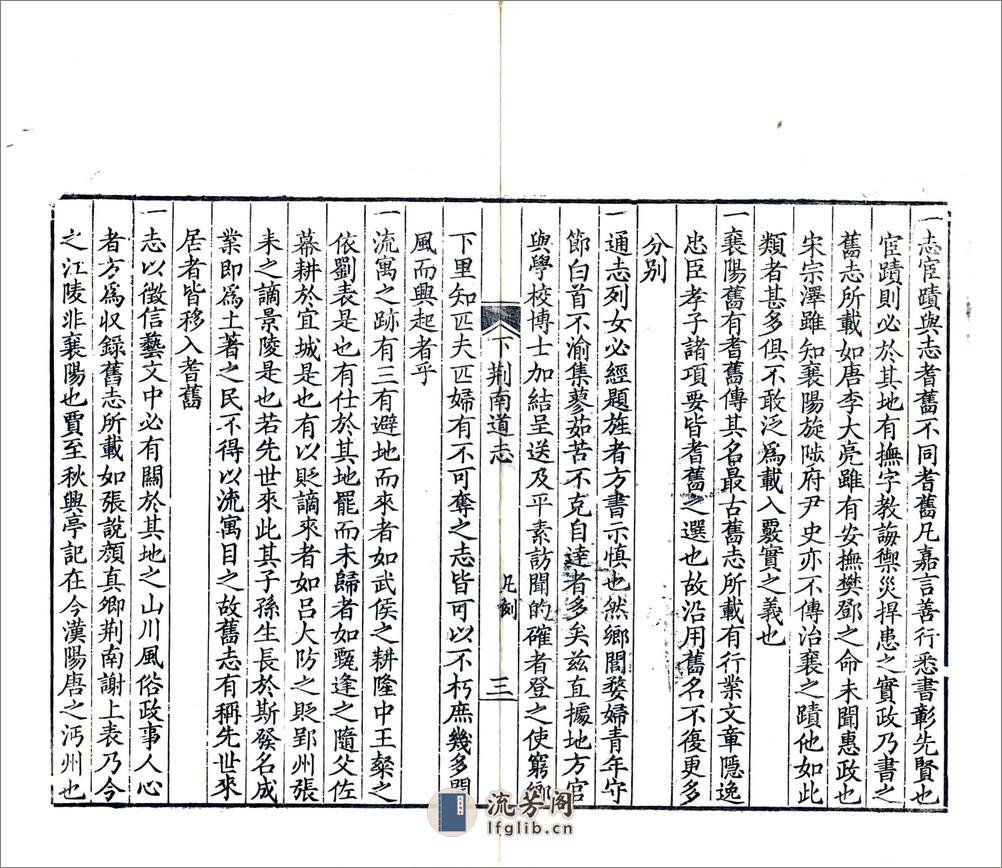 一志宦蹟與志耆舊不同耆舊凡嘉言善行悉書彰先賢也
宦蹟則必於其地有撫字教誨禦災捍患之實政乃書之
舊志所載如唐李大亮雖有安撫樊鄧之命未聞惠政也
宋宗澤雖知襄陽旋陟府尹史亦不傳治襄之蹟他如此
類者甚多俱不敢泛爲載入覈實之義也
一襄陽舊有耆舊傳其名最古舊志所載有行業文章隱逸
忠臣孝子諸項要皆耆舊之選也故沿用舊名不復更多
分别
一通志列女必經題旌者方書示慎也然鄉閭嫠婦青年守
節白首不渝集蓼茹苦不克自達者多矣兹直據地方官
與學校博士加結呈送及平素訪聞的確者登之使窮鄉
下荆南道志
凡例
三
下里知匹夫匹婦有不可奪之志皆可以不朽庶幾多聞
風而興起者乎
一流寓之跡有三有避地而來者如武侯之耕隆中王粲之
依劉表是也有仕於其地罷而未歸者如甄逢之隨父佐
幕耕於宜城是也有以貶謫來者如吕大防之貶郢州張
耒之謫景陵是也若先世來此其子孫生長於斯發名成
業即爲土著之民不得以流寓目之故舊志有稱先世來
居者皆移入耆舊
一志以徵信藝文中必有關於其地之山川風俗政事人心
者方爲収録舊志所載如張說顔真卿荆南謝上表乃今
之江陵非襄陽也賈至秋興亭記在今漢陽唐之沔州也
流芳阁
lfglib.cn